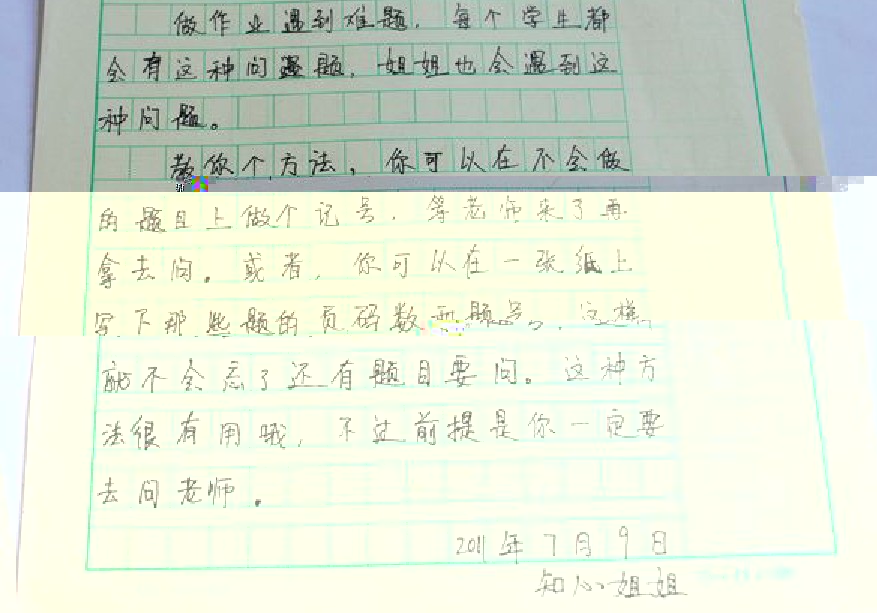 做作业遇到难题，每个学生都
会有这种问题，姐姐也会遇到这
种问题。
教你个方法，你可以在不会做
的题目上做个记号，等老师来了再
拿去问。或者，你可以在一张纸上
写下那些题的页码数和题号，这样
就不会忘了还有题目要问。这种方
法很有用哦，不过前提是你一定要
去问老师。
2011年7月9日
知心姐姐